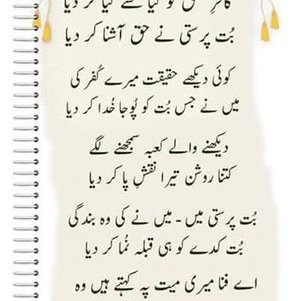 کافرِ عشق کو کیا سے کیا کر دیا
بُت پرستی نے حق آشنا کر دیا
کوئی دیکھے حقیقت میرے کُفر کی
میں نے جس بُت کو پُوجا خُدا کر دیا
دیکھنے والے کعبہ سمجھنے لگے
کتنا روشن تیرا نقشِ پا کر دیا
بُت پرستی میں - میں نے کی وہ بندگی
بُت کدے کو ہی قبلہ نُما کر دیا
اے فنا میری میت پہ کہتے ہیں وہ